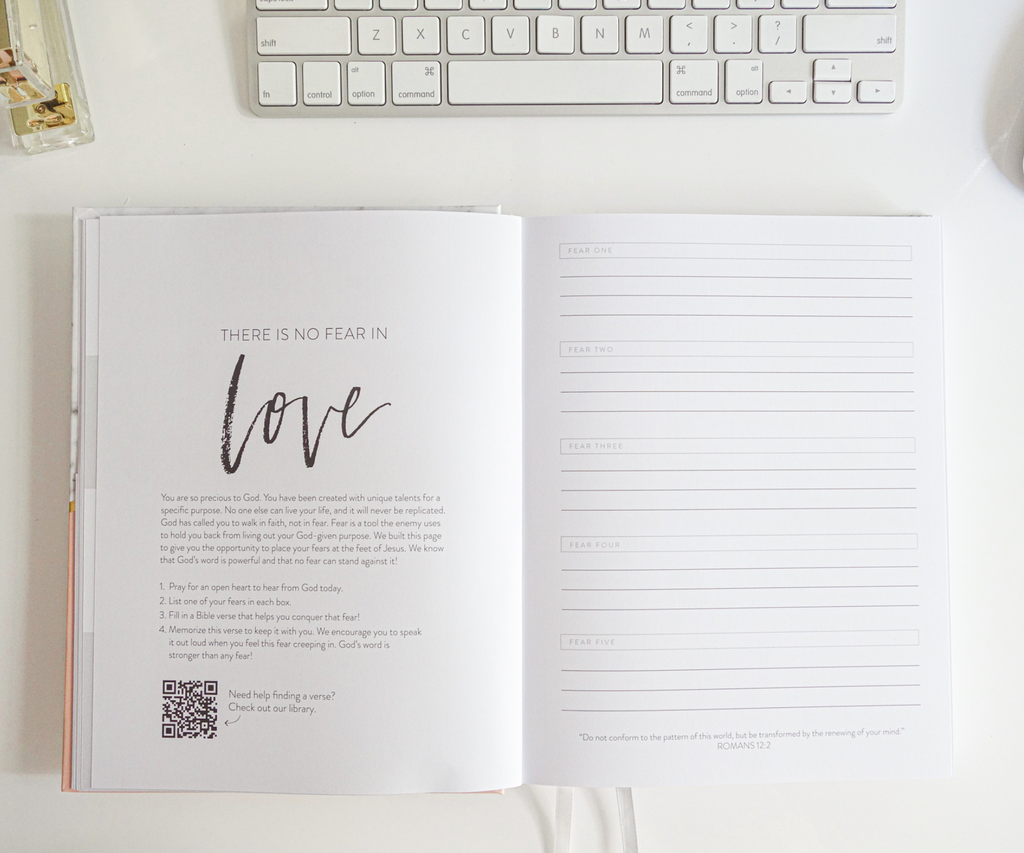 shift
Z
X
C
V
B
N
M
<
,
>
.
?
/
shift
fn
control
alt
option
⌘
command
⌘
command
alt
option
THERE IS NO FEAR IN
love
You are so precious to God. You have been created with unique talents for a
specific purpose. No one else can live your life, and it will never be replicated.
God has called you to walk in faith, not in fear. Fear is a tool the enemy uses
to hold you back from living out your God-given purpose. We built this page
to give you the opportunity to place your fears at the feet of Jesus. We know
that God's word is powerful and that no fear can stand against it!
1. Pray for an open heart to hear from God today.
2. List one of your fears in each box.
3. Fill in a Bible verse that helps you conquer that fear!
4. Memorize this verse to keep it with you. We encourage you to speak
it out loud when you feel this fear creeping in. God's word is
stronger than any fear!
Need help finding a verse?
Check out our library.
FEAR ONE
FEAR TWO
FEAR THREE
FEAR FOUR
FEAR FIVE
"Do not conform to the pattern of this world, but be transformed by the renewing of your mind."
ROMANS 12:2